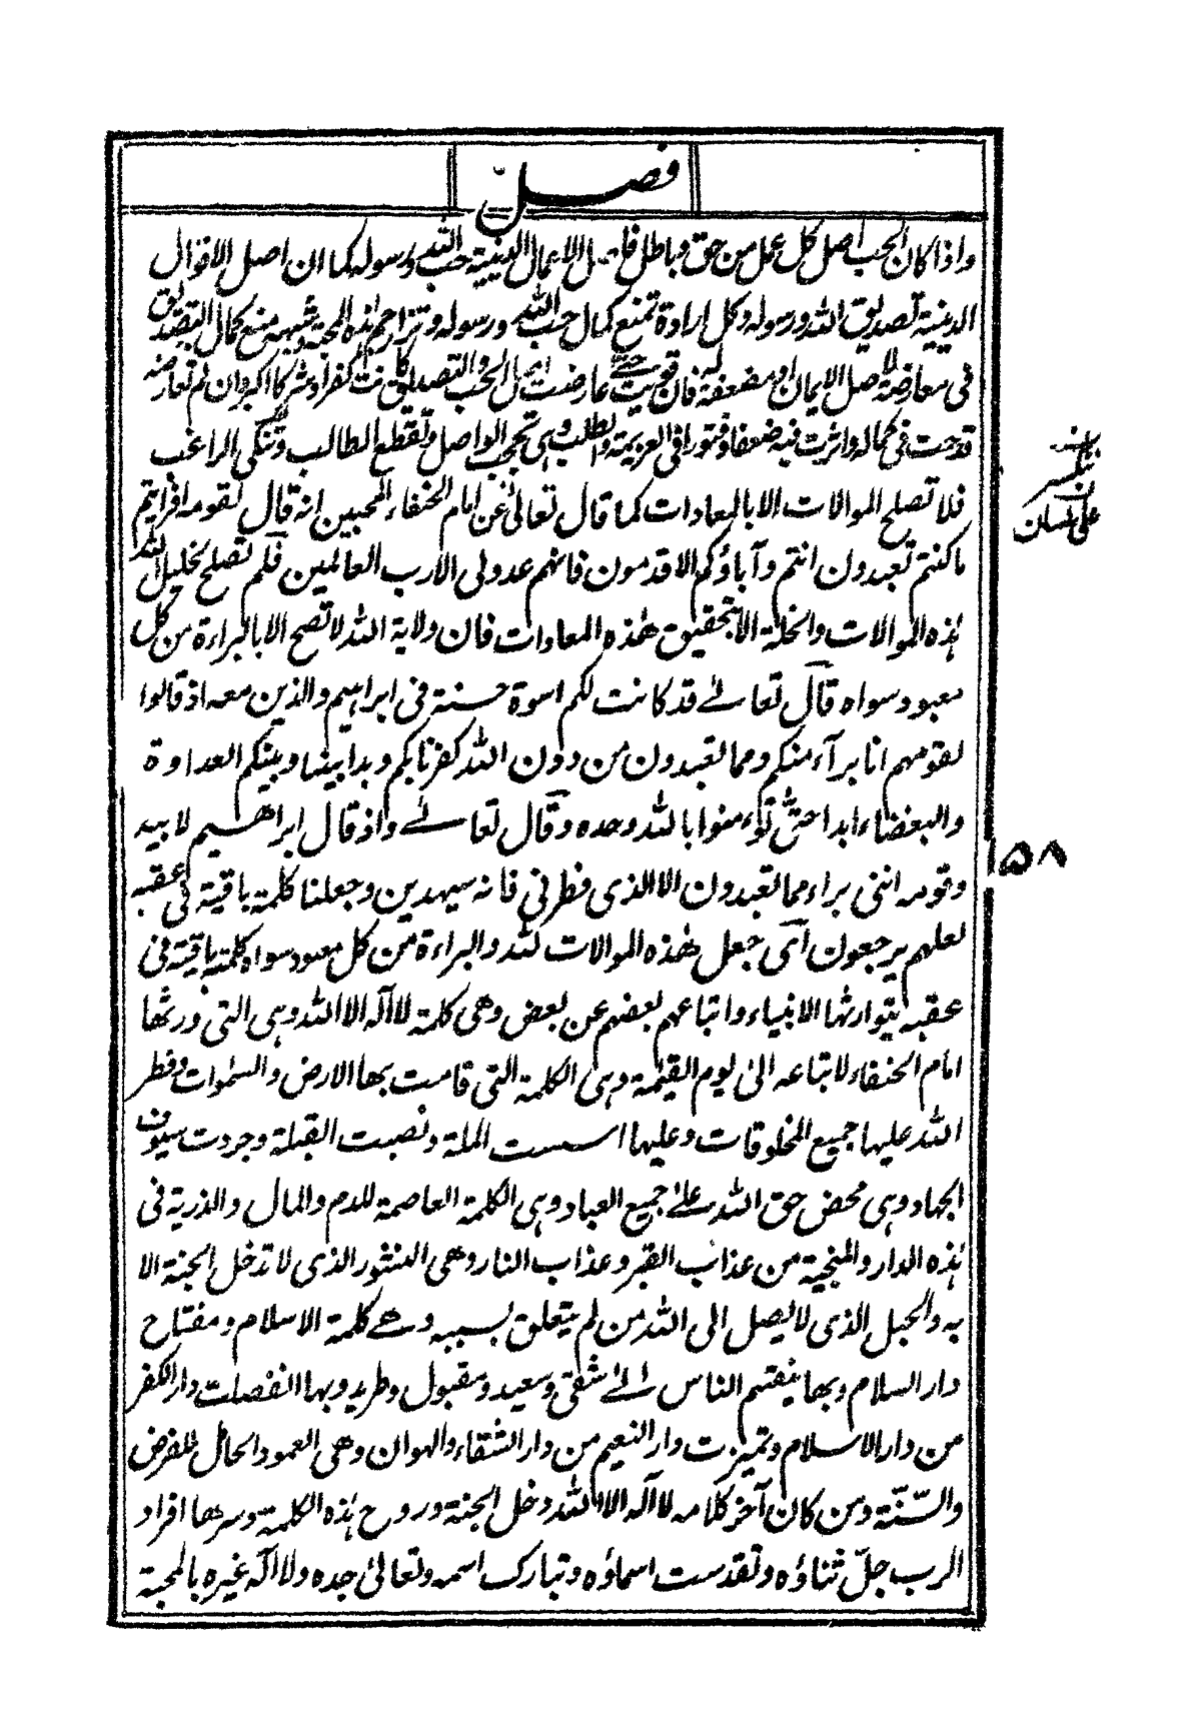 فصل
واذا كان الحب اصل كل عمل من حق وباطل فاصل الاعمال الدينية حب الله ورسوله كما ان اصل الاقوال
الدينية تصديق الله ورسوله وكل ارادة تمنع كمال حب الله ورسوله وتزاحم هذه المحبة وشبهة منع كمال التصديق
فى معارضة لاصل الايمان او مضعفة له فان قويت حتى عارضت اصل الحب والتصديق كانت كفرا وشركا اكبر وان لم تعارضه
قدحت فى كماله واثرت فيه ضعفا وفتورا فى العزيمة والطلب وهى تحجب الواصل وتقطع الطالب وتنكى الراغب
فلا تصلح الموالات الا بالمعادات كما قال تعالى عن امام الحنفاء المحبين انه قال لقومه افرايتم
ما كنتم تعبدون انتم وآباؤكم الاقدمون فانهم عدو لى الا رب العالمين فلم تصلح لخليل الله
هذه الموالات والخلة الا بتحقيق هذه المعادات فان ولاية الله لا تصح الا بالبراءة من كل
معبود سواه قال تعالے قد كانت لكم اسوة حسنة فى ابراهيم والذين معه اذ قالوا
لقومهم انا برآء منكم ومما تعبدون من دون الله كفرنا بكم وبدا بيننا وبينكم العداوة
والبغضاء ابدا حتى تؤمنوا بالله وحده وقال تعالے واذ قال ابراهيم لابيه
وقومه اننى براء مما تعبدون الا الذى فطرنى فانه سيهدين وجعلنا كلمة باقية فى عقبه
لعلهم يرجعون اى جعل هذه الموالات لله والبراءة من كل معبود سواه كلمة باقية فى
عقبه يتوارثها الانبياء واتباعهم بعضهم عن بعض وهى كلمة لا اله الا الله وهى التى ورثها
امام الحنفاء لاتباعه الى يوم القيمة وهى الكلمة التى قامت بها الارض والسموات وفطر
الله عليها جميع المخلوقات وعليها اسست الملة ونصبت القبلة وجردت سيوف
الجهاد وهى محض حق الله على جميع العباد وهى الكلمة العاصمة للدم والمال والذرية فى
هذه الدار والمنجية من عذاب القبر وعذاب النار وهى المنثور الذى لا تدخل الجنة الا
به والحبل الذى لا يصل الى الله من لم يتعلق بسببه وهے كلمة الاسلام ومفتاح
دار السلام وبها ينقسم الناس الے شقى وسعيد ومقبول وطريد وبها انفصلت دار الكفر
من دار الاسلام وتميزت دار النعيم من دار الشقاء والهوان وهى العمود الحامل للفرض
والسنّة ومن كان آخر كلامه لا اله الا الله دخل الجنة وروح هذه الكلمة وسرها افراد
الرب جلّ ثناؤه وتقدست اسماؤه وتبارك اسمه وتعالى جده ولا اله غيره بالمحبة
على لسان
١٥٨